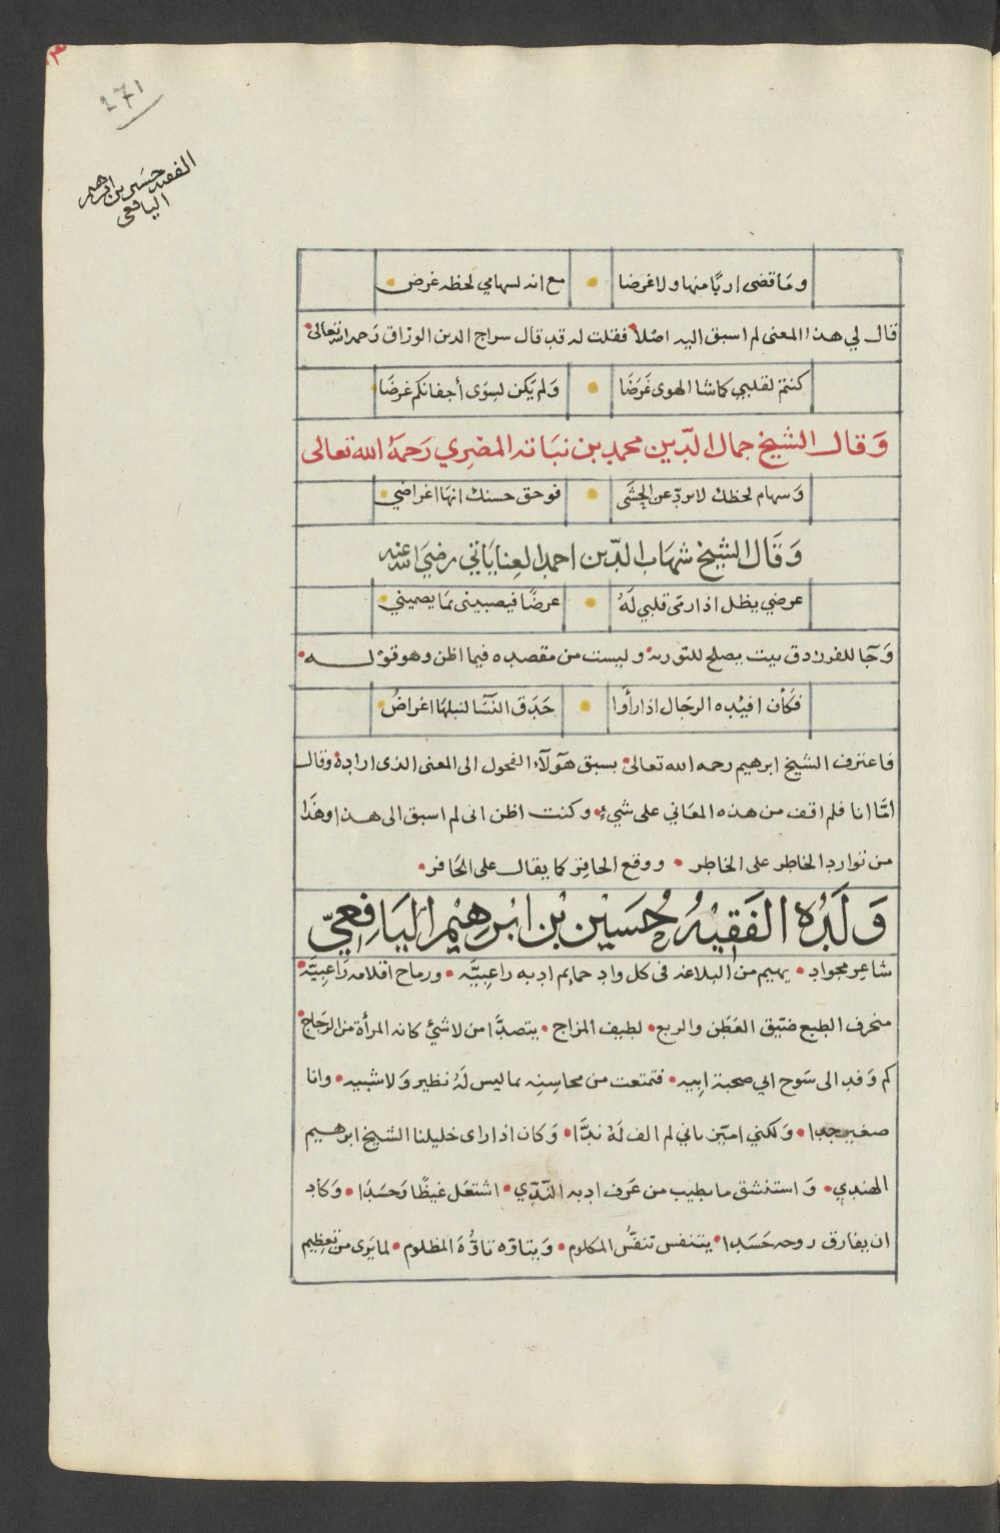 ٢٧١
الفقيه حسين بن ابرهيم
اليافعي
ومَا قضى اربًا منها ولا غرضا • مع انه لسهامي لحظه غرض •
قال لي هذا المعنى لم اسبق اليه اصْلاً فقلت له قد قال سراج الدين الورّاق رَحمه الله تعالى •
كنتم لقلبي كما شا الهوى غَرَضًا • وَلم يَكن لسِوَى أجفانكم غرضَا •
وَقال الشيخ جمال الدّين محمد بن نبَاته المصْرِي رَحمَهُ الله تعالى
وَسهام لحظك لا تردّ عن الحِشَى • فو حق حسنك انهَا اغراضي •
وَقَال الشيخ شهَاب الدّين احمد العِناياتي رضيَ الله عنه
عرضي يظل اذا رمَى قلبي لَهُ • عرضًا فيصبينى بمَا يصميني •
وَجَا للفرزدق بيت يصلح للتوريه وليست من مقصده فيما اظن وهو قوْلـــه •
فكَأن افيُده الرجَال اذا رأوا • حَدَق النّسَا لنبلهَا اغراضُ •
فاعترف الشيخ ابرهيم رحمه الله تعالى • بسبق هَؤلآء الفحول الى المعنى الذى ارادهْ وقال
امّا انا فلم اقف من هذه المعَاني على شيءٍ • وكنت اظن انى لم اسبق الى هذا وهَذَا
من توارد الخاطر على الخاطر • ووقع الحافِر كما يقال على الحَافر •
وَلَدُه الفَقِيْهُ حُسَيْن بْن ابْرهِيْم اليَافِعِيّ
شاعِر مجوادٍ • يهيم من البلاغه فى كل وادٍ حمايم ادبه راعِبيَّه • ورماح اقلامه زَاعِبيَّه •
منحرف الطبع ضَيّق العَطَن والربع • لطيف المزاج • يتصدّا من لا شئ كانه المرأة من الزجَاج •
كم وَفد الى سَوح ابي صحبة ابِيه • فتمتعت من محاسِنِه بما ليس لَهُ نظير وَلا شبيه • وانا
صغير جدا • وَلكني اميّز باني لم الف لَهُ ندَّا • وَكان اذا راى خليلنا الشيخ ابرهيم
الهندِي • وَاستنشق ما يطيب من عَرف ادبه النّدّي • اشتعَل غيظًا وَحسَدًا • وَكاد
ان يفارق روحه حَسَدا • يتنفس تنفسُّ المكلوم • وَيتاوّه تاوُّهَ المظلوم • لما يَرى من تعظِيم